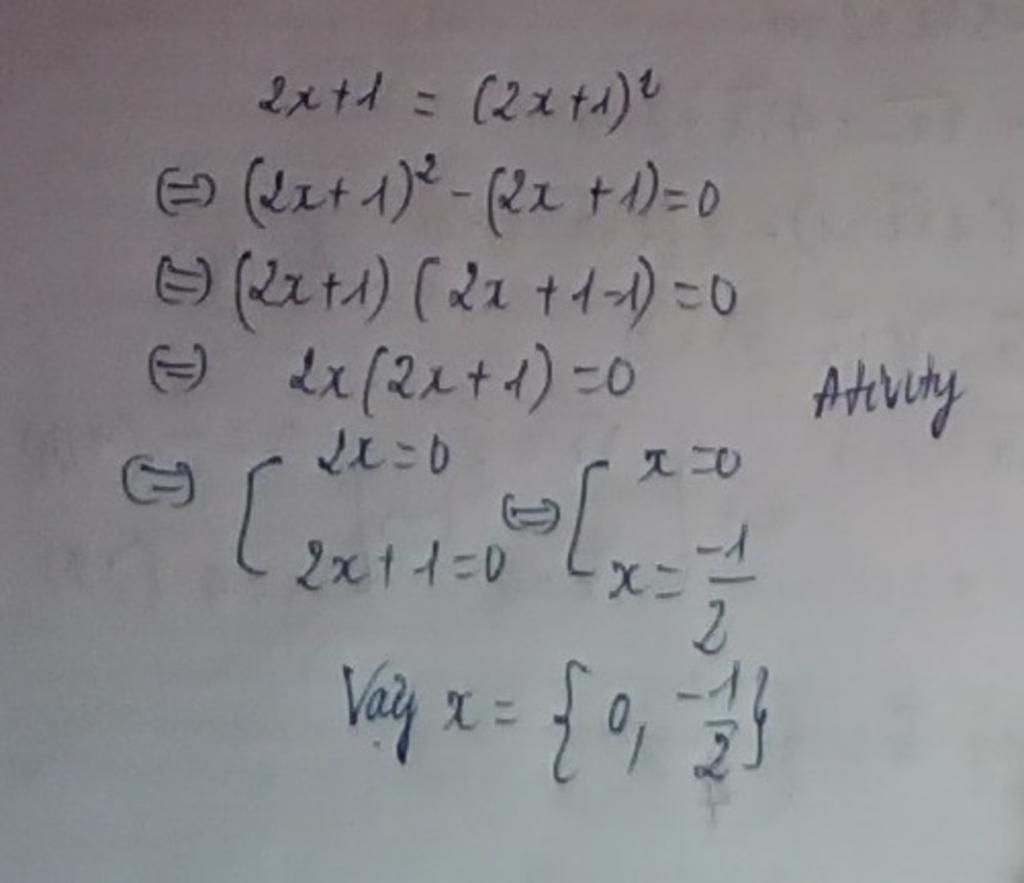 2x+1 = (2x+1)²
⇔ (2x+1)² - (2x+1)=0
⇔ (2x+1) (2x+1-1)=0
⇔ 2x(2x+1)=0
⇔ [ 2x=0 ⇔ [ x=0
2x+1=0 x= -1/2
Vậy x = { 0, -1/2 }